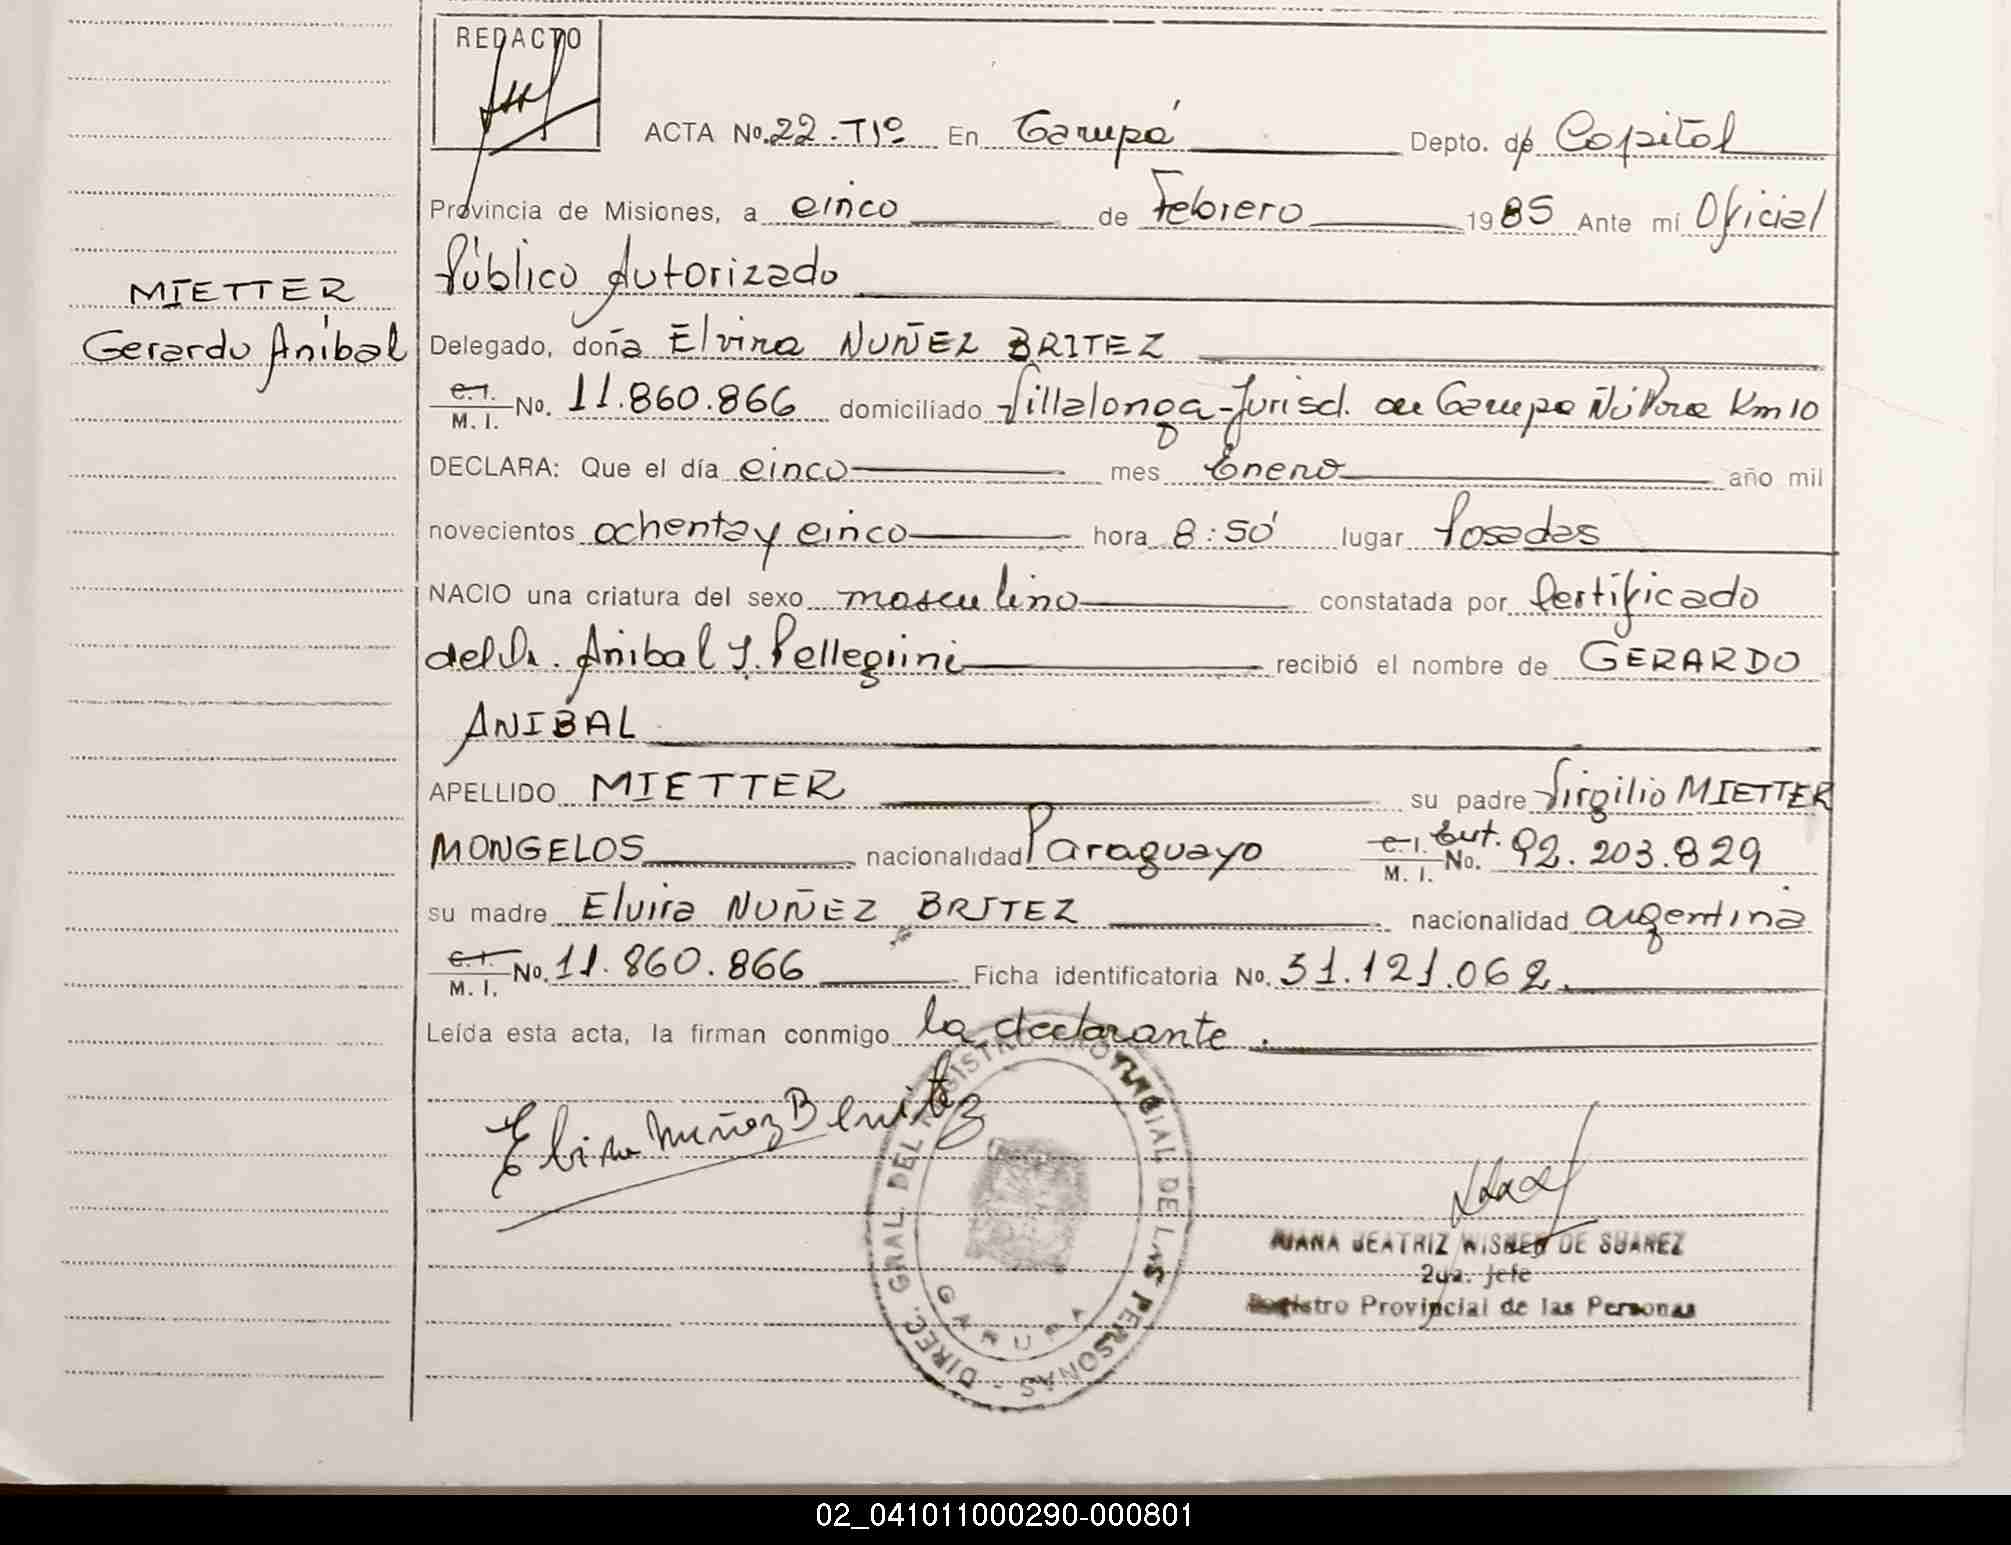 REDACTO
ACTA No. 22 - T1º En Garupá Depto. de Capital
Provincia de Misiones, a cinco de Febrero 1985 Ante mí Oficial
Público Autorizado
MIETTER
Gerardo Aníbal
Delegado, doña Elvira NUÑEZ BRITEZ
C.I. M. I. No. 11.860.866 domiciliado Villalonga - Jurisd. de Garupa Km 10
DECLARA: Que el día cinco mes Enero año mil
novecientos ochenta y cinco hora 8:50' lugar Posadas
NACIO una criatura del sexo masculino constatada por Certificado
del Dr. Aníbal J. Pellegrini recibió el nombre de GERARDO
ANIBAL
APELLIDO MIETTER su padre Virgilio MIETTER
MONGELOS nacionalidad Paraguayo C.I. M. I. No. 92.203.829
su madre Elvira NUÑEZ BRITEZ nacionalidad argentina
C.I. M. I. No. 11.860.866 Ficha identificatoria No. 31.121.062.
Leída esta acta, la firman conmigo la declarante.
DIREC. GRAL. DEL REGISTRO PROVINCIAL DE LAS PERSONAS -
GARUPA
JUANA BEATRIZ WISNER DE SUAREZ
2da. Jefe
Registro Provincial de las Personas
02_041011000290-000801